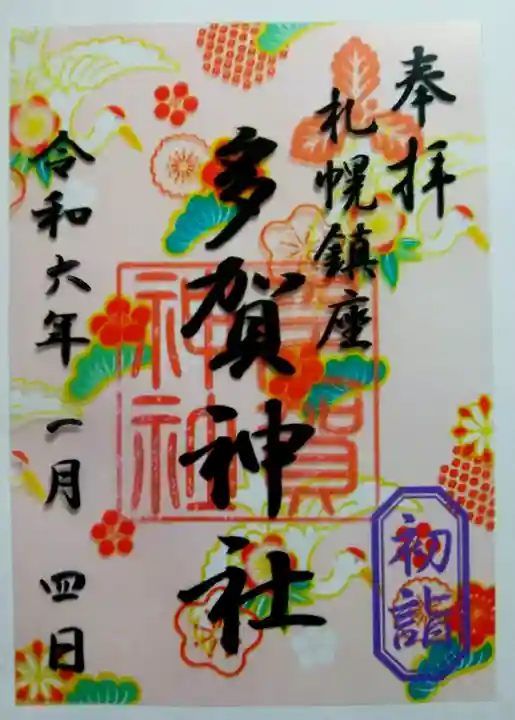 奉拝
札幌鎮座
多賀神社
多賀神社
令和六年 一月 四日
初詣